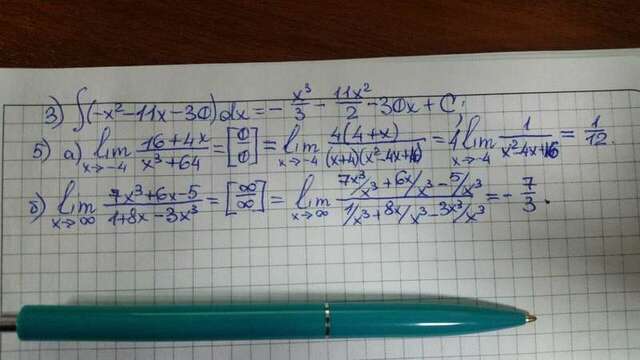 3) ∫(-x²-11x-30)dx = - x³/3 - 11x²/2 - 30x + C;
5) а) lim x→-4 (16+4x)/(x³+64) = [0/0] = lim x→-4 4(4+x)/((x+4)(x²-4x+16)) = 4 lim x→-4 1/(x²-4x+16) = 1/12.
б) lim x→∞ (7x³+6x-5)/(1+8x-3x³) = [∞/∞] = lim x→∞ (7x³/x³+6x/x³-5/x³)/(1/x³+8x/x³-3x³/x³) = - 7/3.